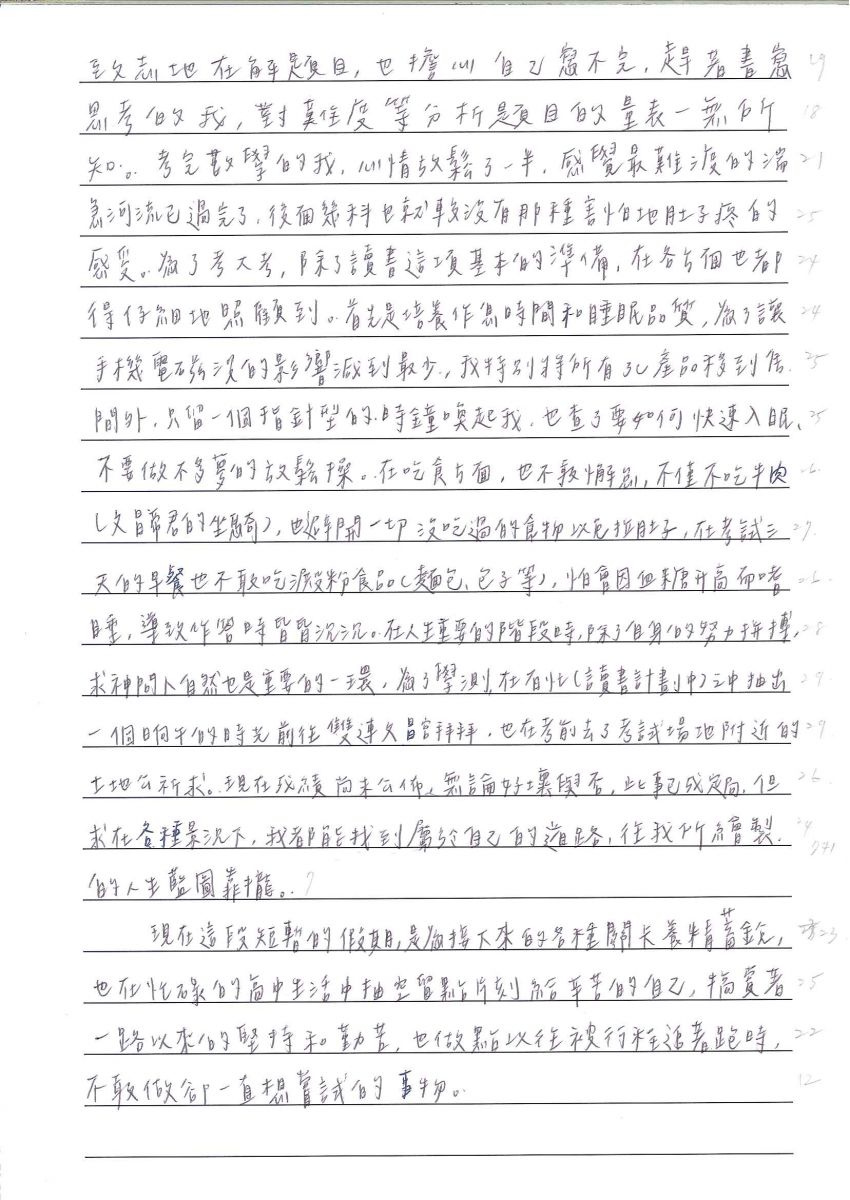 致志地在解題目，也擔心自己寫不完，趕著書急 19
思考的我，對難度等分析題目的量表一無所 18
知。考完數學的我，心情放鬆了一半，感覺最難渡的湍 21
急河流已過完了，後面幾科也就較沒有那種害怕地肚子疼的 25
感受。為了考大考，除了讀書這項基本的準備，在各方面也都 24
得仔細地照顧到。首先是培養作息時間和睡眠品質，為了讓 24
手機電磁波的影響減到最少，我特別將所有3C產品移到房 25
間外，只留一個指針型的時鐘喚起我，也查了要如何快速入眠、 25
不要做不多夢的放鬆操。在吃食方面，也不敢懈怠，不僅不吃牛肉 26
(文昌帝君的坐騎)，也避開一切沒吃過的食物以免拉肚子，在考試三 27
天的早餐也不敢吃澱粉食品(麵包、包子等)，怕會因血糖升高而嗜 26
睡，導致作答時昏昏沉沉。在人生重要的階段時，除了自身的努力拚搏， 28
求神問卜自然也是重要的一環，為了學測，在百忙(讀書計劃中)之中抽出 29
一個晌午的時光前往雙連文昌宮拜拜，也在考前去了考試場地附近的 29
土地公祈求。現在成績尚未公佈，無論好壞與否，此事已成定局，但 26
求在各種景況下，我都能找到屬於自己的道路，往我所繪製 24
的人生藍圖靠攏。 941
現在這段短暫的假期，是為接下來的各種關卡養精蓄銳， 23
也在忙碌的高中生活中抽空留點片刻給辛苦的自己，犒賞著 25
一路以來的堅持和勤苦，也做點以往被行程追著跑時， 22
不敢做卻一直想嘗試的事物。 12